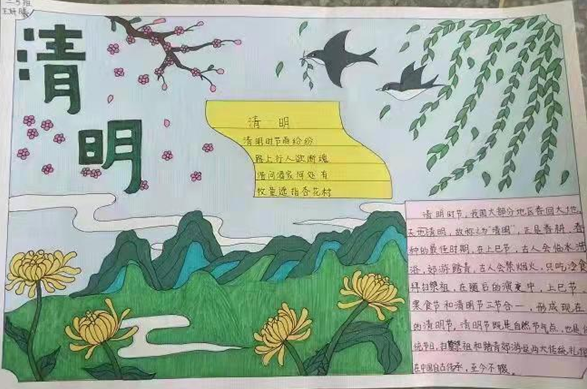 清明
清 明
清明时节雨纷纷
路上行人欲断魂
借问酒家何处有
牧童遥指杏花村
清明时节,我国大部分地区春回大地
去袍清明,故称之为"清明"。正是春耕、春
种的最佳时期,在上巳节,古人会临水
游,郊游踏青,古人会禁烟火,只吃冷食
拜扫祭祖,在随后的演变中,上巳节、
寒食节和清明节三节合一,形成现在
的清明节,清明节既是自然节气点,也是
统节日,扫祭祖和踏青郊游是两大
在中国自古传承,至今不辍。